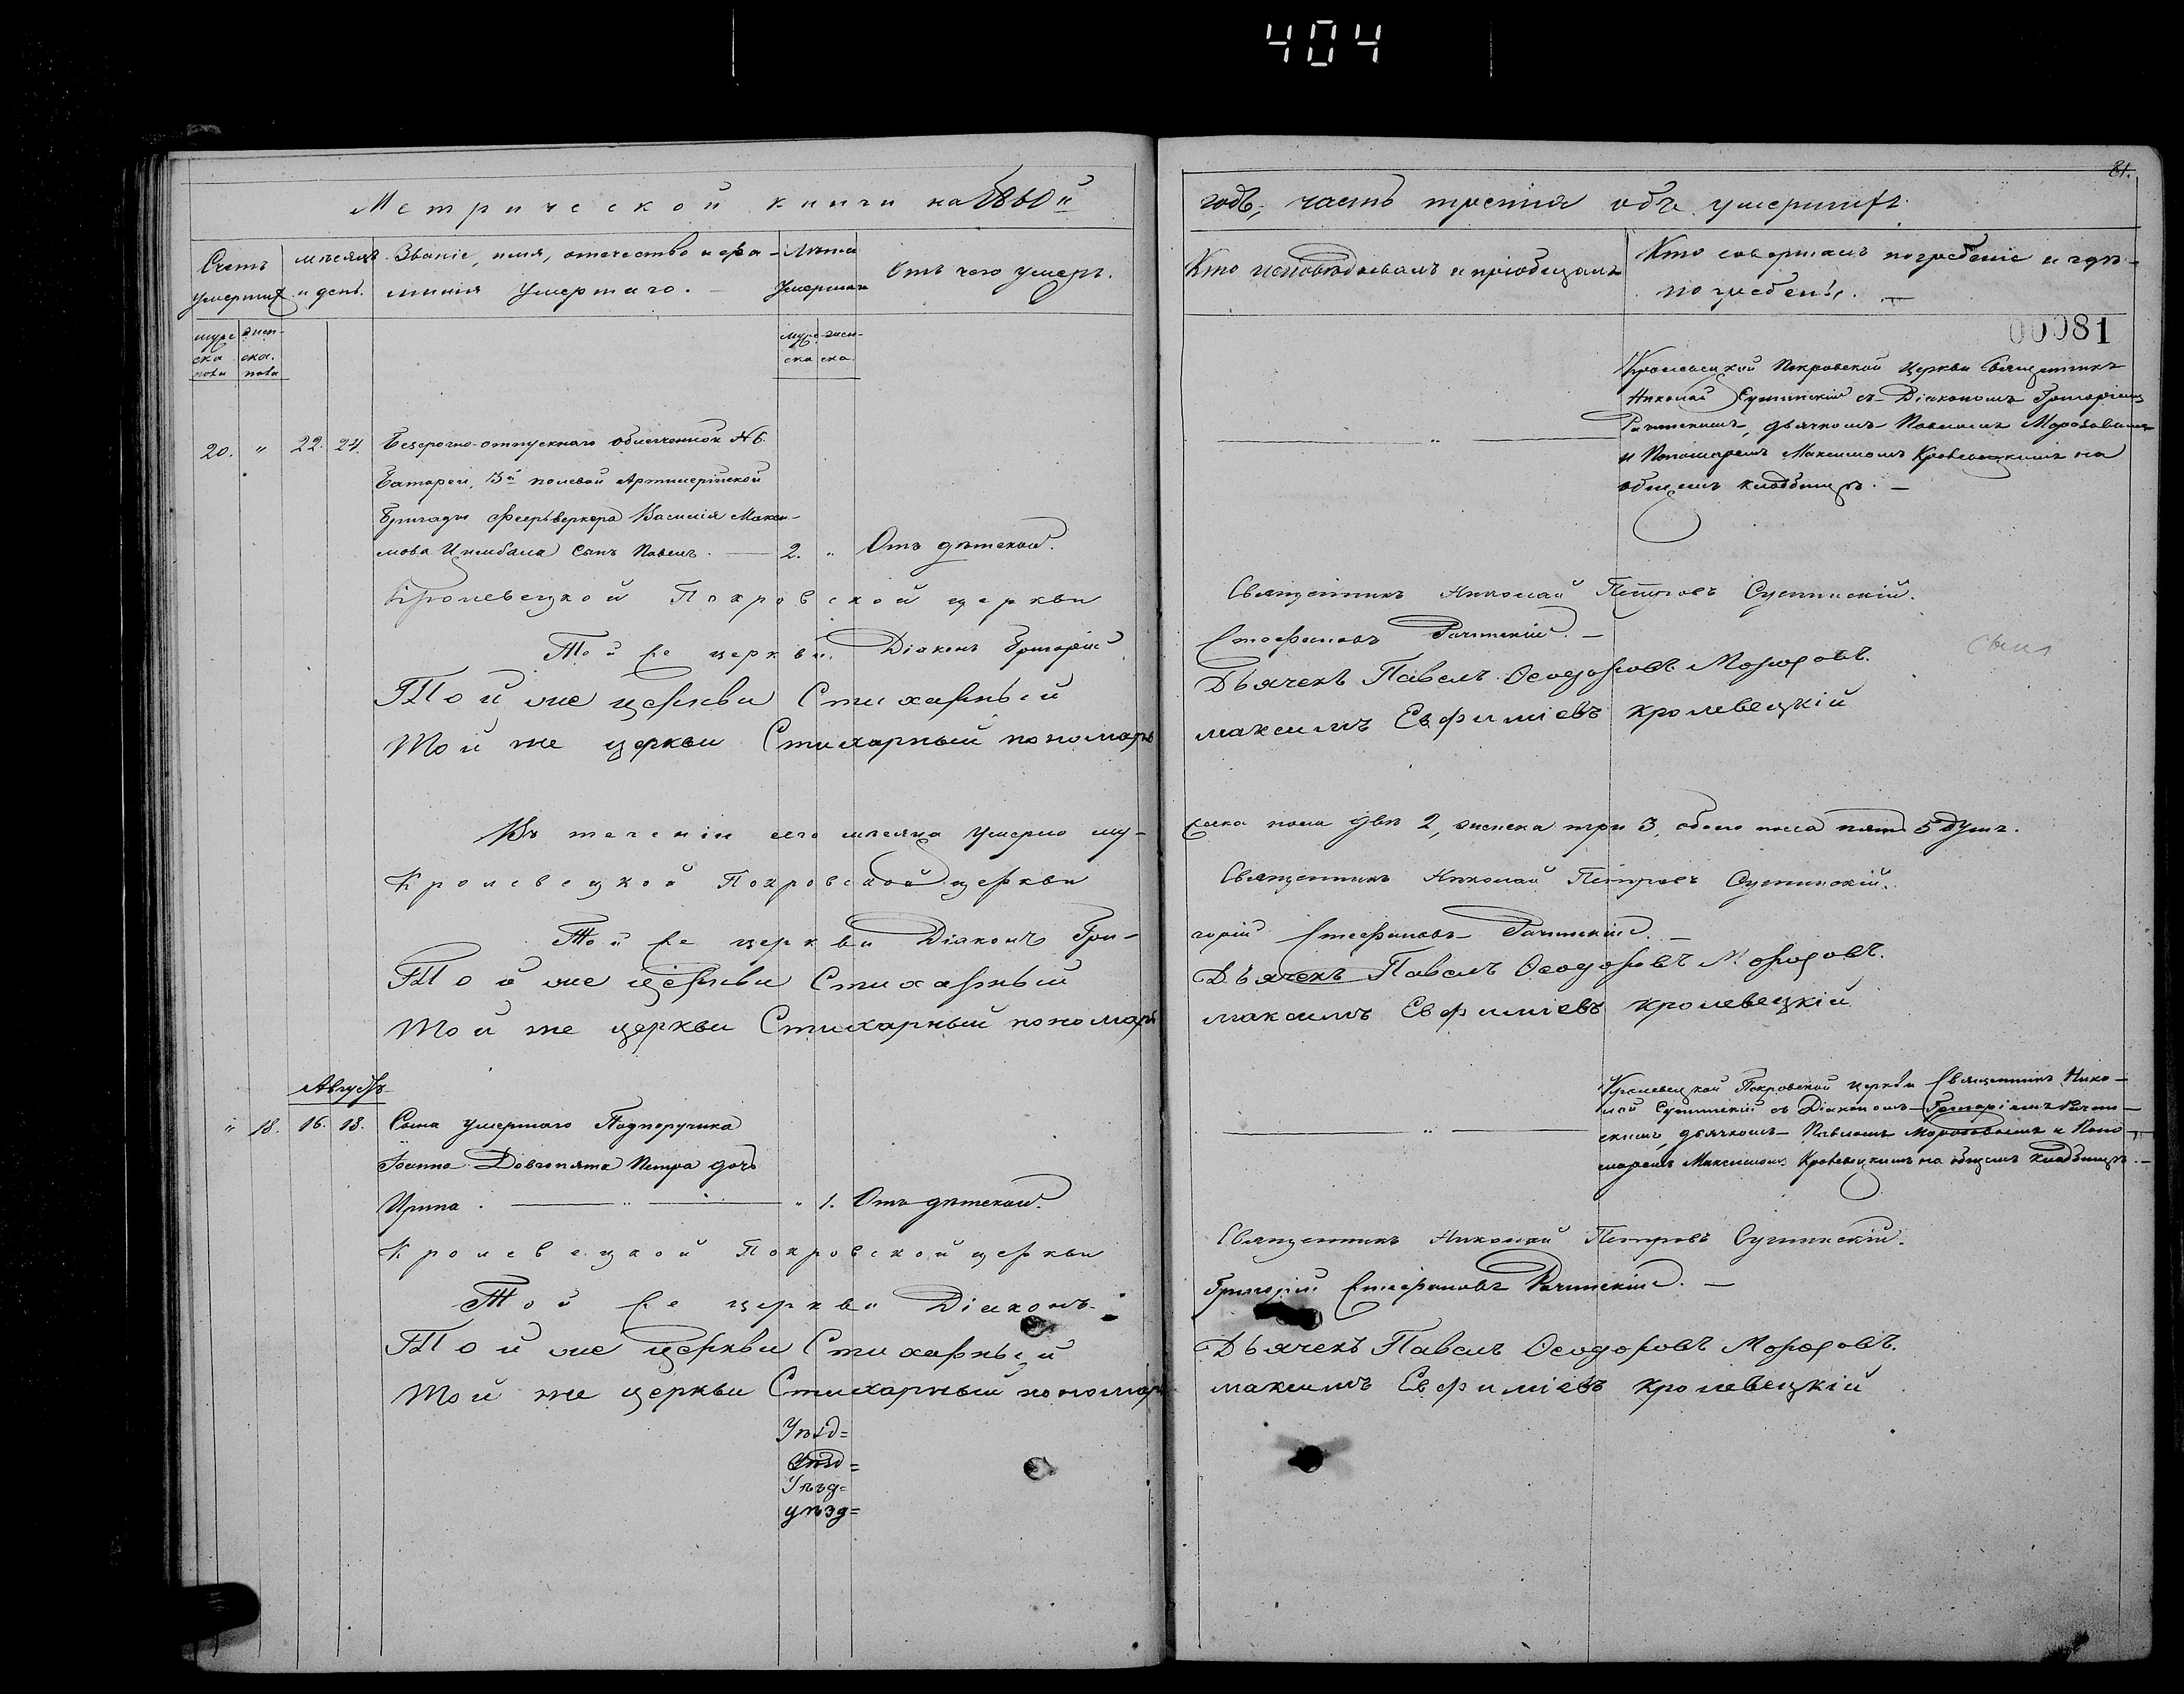 404
81.
Метрической книги на 1860й
годъ, часть третія объ умершихъ.
Счетъ умершихъ
мѣсяцъ и день.
Званіе, имя, отечество и фа-
милія умершаго.
Лѣта умершаго
Отъ чего умеръ.
Кто исповѣдывалъ и пріобщалъ
Кто совершалъ погребеніе и гдѣ
погребены.
муже
ска
пола
жен-
ска.
пола
муже
ска
жен-
ска.
00081
20. " 22. 24.
Безсрочно-отпускнаго облегченной №6
Батареи, 13й полевой Артилерійской
Бригады Феерьверкера Василія Макси-
мова Цимбала сынъ Павелъ. — 2. " Отъ дѣтской.
Кролевецкой Покровской Церкви Священникъ
Николай Сушинскій съ Діакономъ Григоріемъ
дьячкомъ Павломъ Морозовымъ
и Пономаремъ Максимомъ Кролевецкимъ на
общемъ кладбищѣ. —
Кролевецкой Покровской церкви
Священникъ Николай Петровъ Сушинскій.
Той же церкви Діаконъ Григорій
Стефановъ
Той же церкви Стихарный
Дьячекъ Павелъ Ѳеодоровъ Морозовъ.
Той же церкви Стихарный пономарь
Максимъ Евфиміевъ Кролевецкій
Въ теченіи сего мѣсяца умерло му-
жеска пола два 2, женска три 3, обоего пола пять 5 душъ.
Кролевецкой Покровской церкви
Священникъ Николай Петровъ Сушинскій.
Той же церкви Діаконъ Гри-
горій Стефановъ
Той же церкви Стихарный
Дьячекъ Павелъ Ѳеодоровъ Морозовъ.
Той же церкви Стихарный пономарь
Максимъ Евфиміевъ Кролевецкій
Августъ
" 18. 16. 18.
Сына умершаго Подпоручика
Іоанна Довгопята Петра дочь
Ирина. — " 1. Отъ дѣтской.
Кролевецкой Покровской церкви Священникъ Нико-
лай Сушинскій съ Діакономъ Григоріемъ
дьячкомъ Павломъ Морозовымъ и Поно-
маремъ Максимомъ Кролевецкимъ на общемъ кладбищѣ. —
Кролевецкой Покровской церкви
Священникъ Николай Петровъ Сушинскій.
Той же церкви Діаконъ
Григорій Стефановъ
Той же церкви Стихарный
Дьячекъ Павелъ Ѳеодоровъ Морозовъ.
Той же церкви Стихарный пономарь
Максимъ Евфиміевъ Кролевецкій
Уѣзд=
Уѣзд=
Уѣзд=
уѣзд=